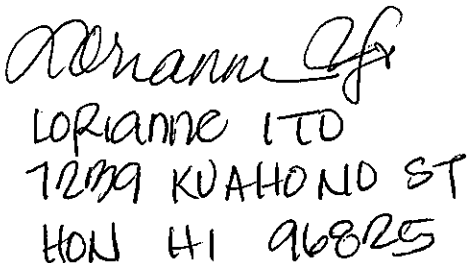 Lorianne Ito
LORIANNE ITO
7239 KUAHONO ST
HON HI 96825